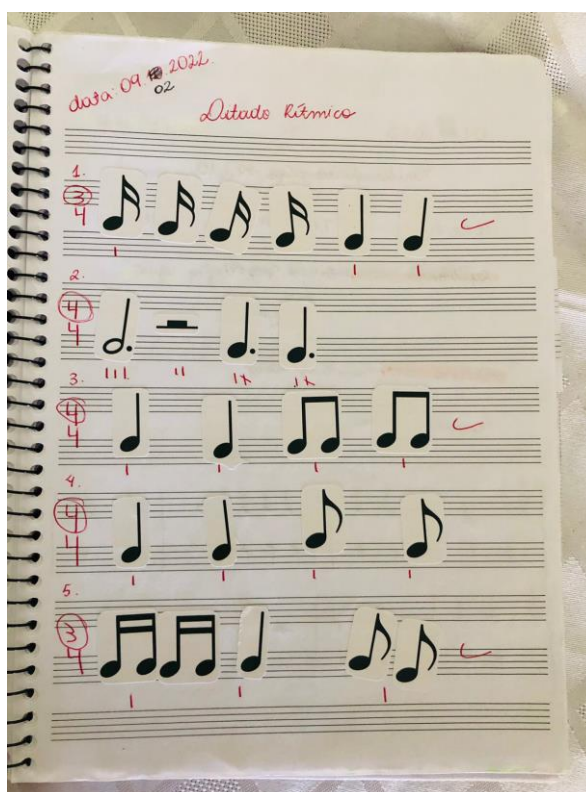 data: 09. .2022.
02
Ditado Rítmico
1.
3
4
2.
4
4
3.
4
4
4.
4
4
5.
3
4